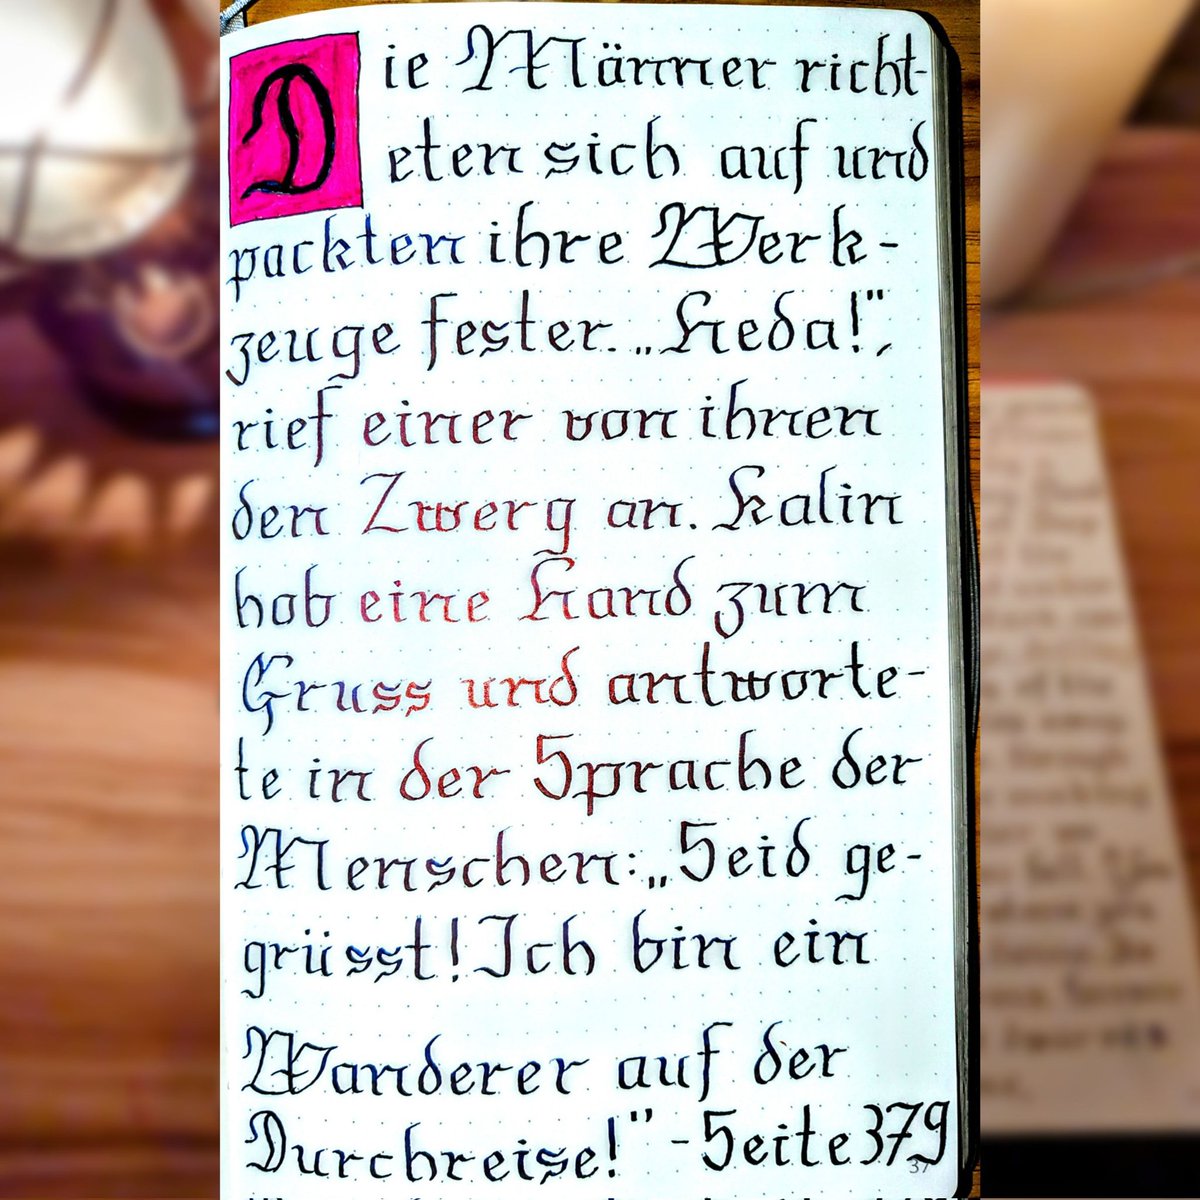 Die Männer richt-
eten sich auf und
packten ihre Werk-
zeuge fester. „Heda!",
rief einer von ihnen
den Zwerg an. Kalin
hob eine Hand zum
Gruss und antworte-
te in der Sprache der
Menschen: „Seid ge-
grüsst! Ich bin ein
Wanderer auf der
Durchreise!" - Seite 379
37